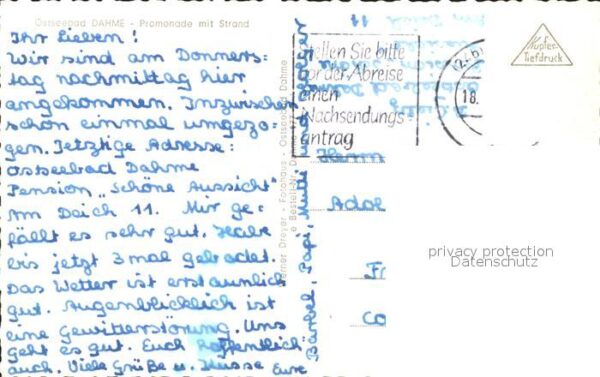 Ostseebad DAHME - Promenade mit Strand
Ihr Lieben!
Wir sind am Donners=
tag nachmittag hier
angekommen. Inzwischen
schon einmal umgezo=
gen. Jetztige Adresse:
Ostseebad Dahme
Pension „Schöne Aussicht"
Am Deich 11. Mir ge=
fällt es sehr gut. Habe
bis jetzt 3 mal gebadet.
Das Wetter ist erstaunlich
gut. Augenblicklich ist
eine Gewitterstörung. Uns
geht es gut. Euch hoffentlich
auch. Viele Grüße u. Küsse Eure
Bärbel, Papi, Mutti und Holger
Werner Dreyer - Fotohaus - Ostseebad Dahme
stellen Sie bitte
vor der Abreise
einen
Nachsendungs-
antrag
18.
Kupfer-
Tiefdruck
Herrn
Adol
Fr
Co
privacy protection
Datenschutz